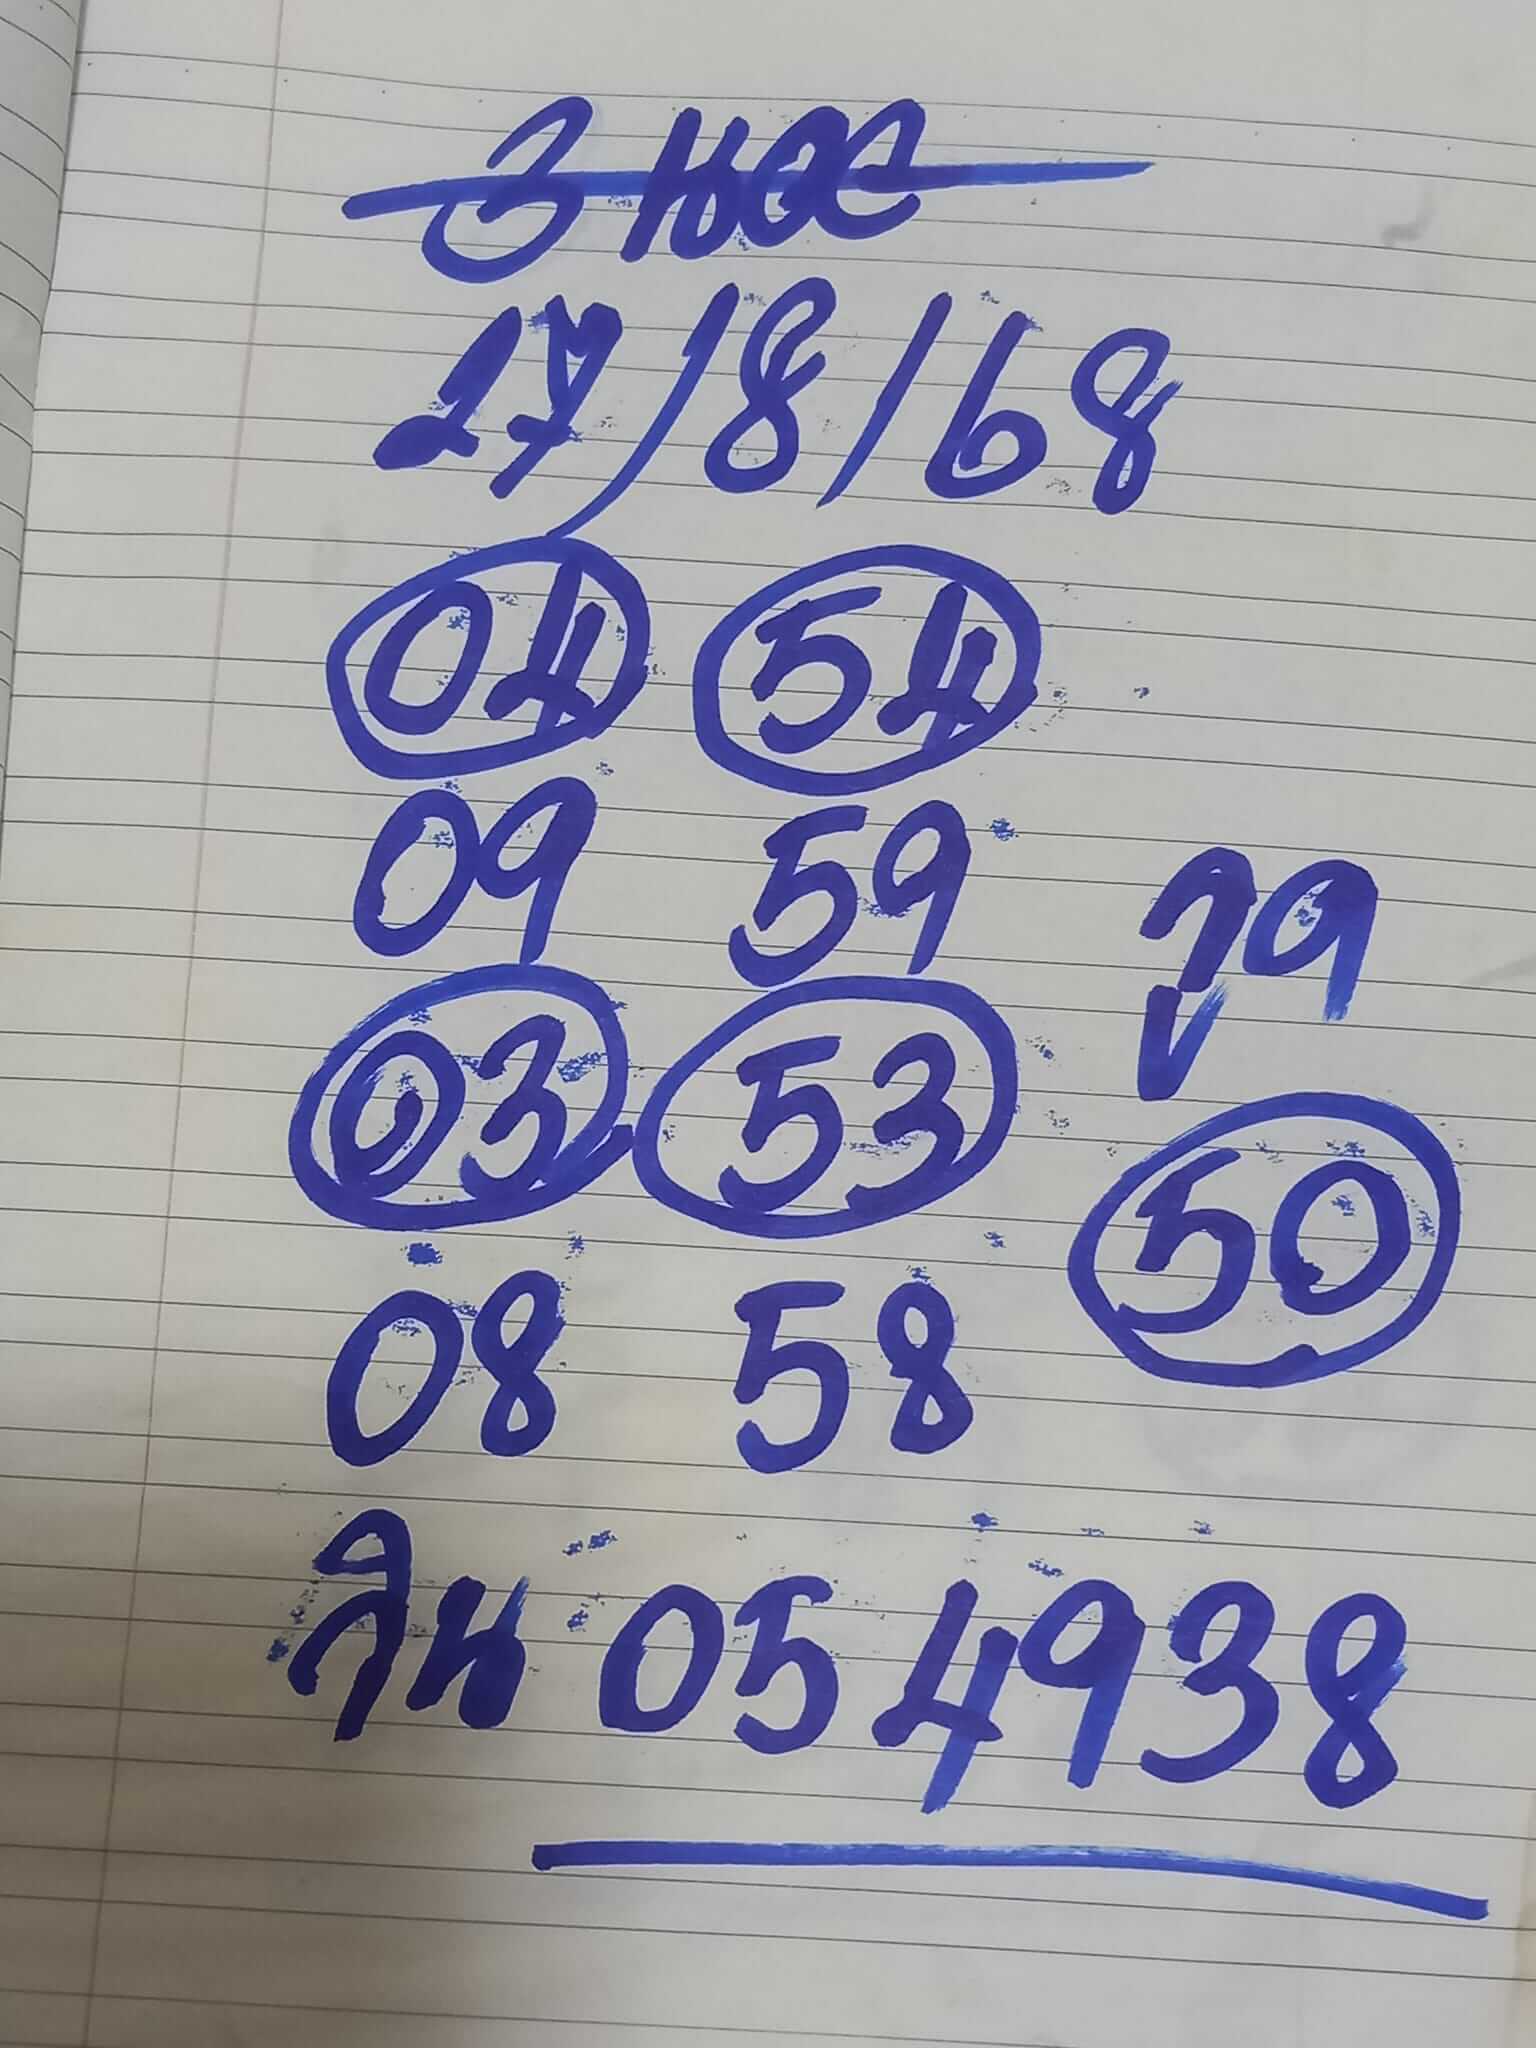 3 นอย
27/8/68
04 54
09 59
03 53
08 58
50
วิน 054938